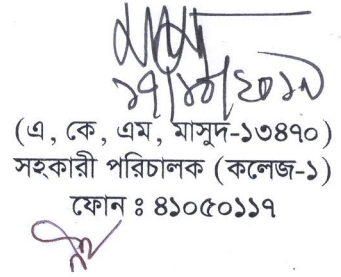 (এ, কে, এম, মাসুদ-১৩৪৭০)
সহকারী পরিচালক (কলেজ-১)
ফোন ঃ ৪১০৫০১১৭